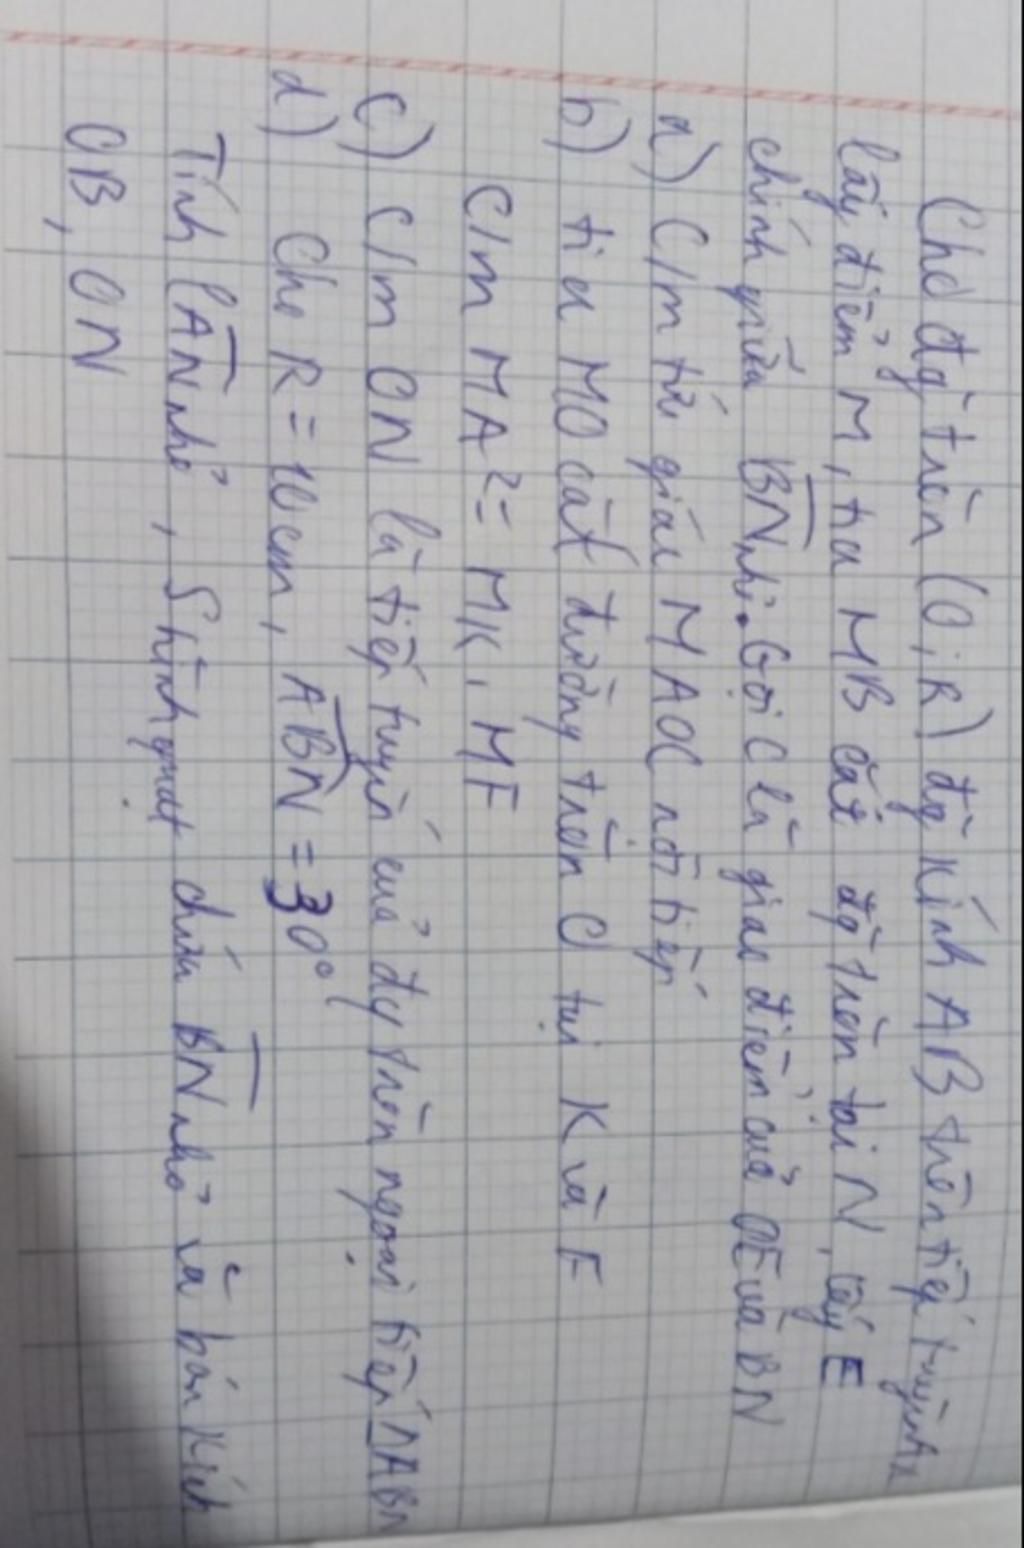 Cho đg tròn (O; R) đg kính AB trên tiếp tuyến Ax
lấy điểm M, tia MB cắt đg tròn tại N, lấy E
chính giữa BN nhỏ. Gọi C là giao điểm của OE và BN
a) C/m tứ giác MAOC nội tiếp
b) tia MO cắt đường tròn O tại K và F
C/m MA² = MK. MF
c) C/m ON là tiếp tuyến của đg tròn ngoại tiếp ΔABN
d) Cho R = 10cm, ABN = 30°
Tính lAN nhỏ, Shình quạt chứa BN nhỏ và bán kính
OB, ON